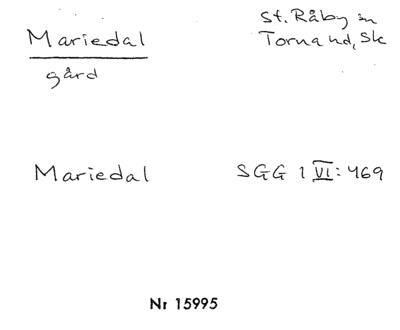 Mariedal
gård
St. Råby sn
Torna hd, Sk
Mariedal
SGG 1 VI: 469
Nr 15995